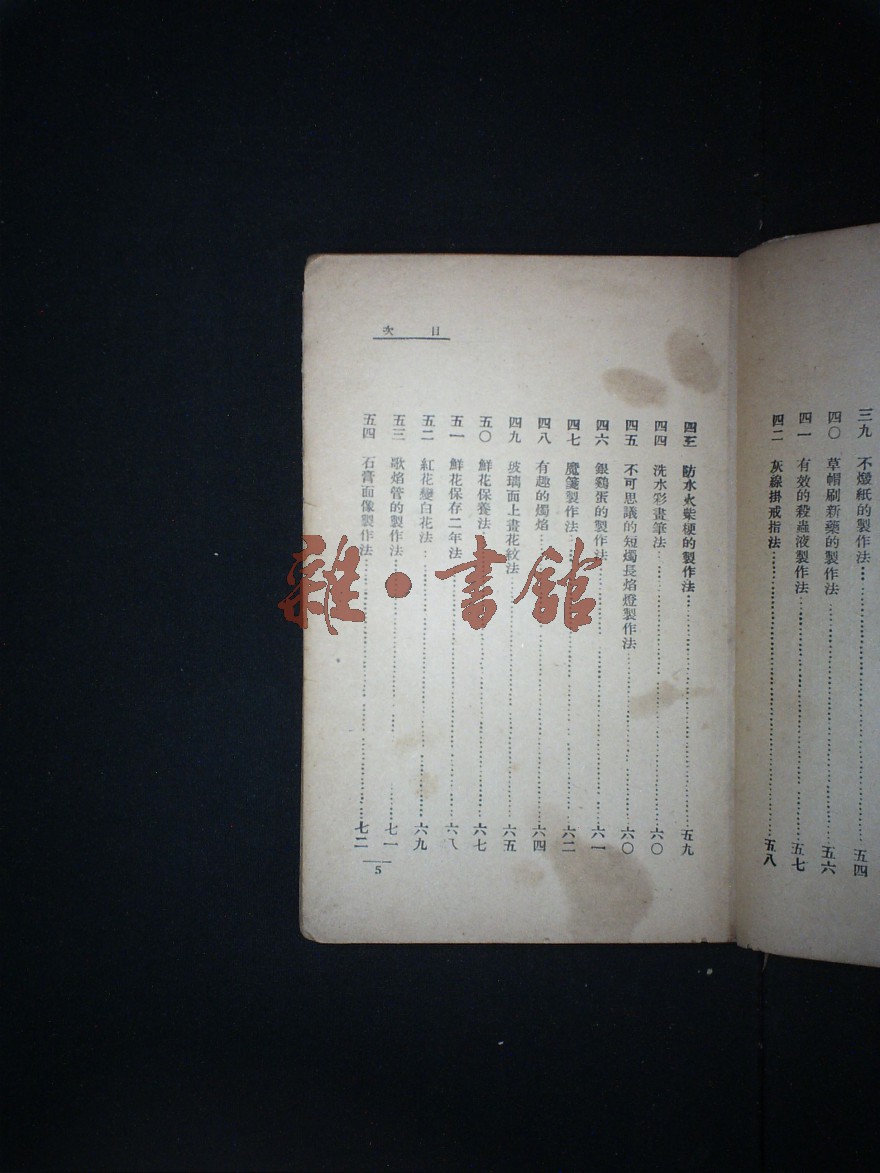 三九 不燬紙的製作法 五四
四〇 草帽刷新藥的製作法 五六
四一 有效的殺蟲液製作法 五七
四二 灰線掛戒指法 五八
目次
四三 防水火柴梗的製作法 五九
四四 洗水彩畫筆法 六〇
四五 不可思議的短燭長焰燈製作法 六〇
四六 銀鷄蛋的製作法 六一
四七 魔箋製作法 六二
四八 有趣的燭焰 六四
四九 玻璃面上畫花紋法 六五
五〇 鮮花保養法 六七
五一 鮮花保存二年法 六八
五二 紅花變白花法 六九
五三 歌焰管的製作法 七一
五四 石膏面像製作法 七二
5
雜·書館